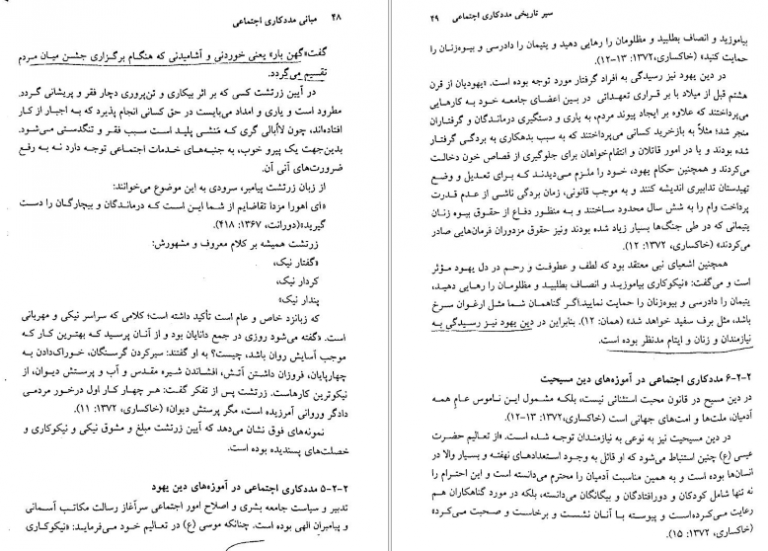 ۴۸ مبانی مددکاری اجتماعی
گفت«گهن بار» یعنی خوردنی و آشامیدنی که هنگام برگزاری جشن میان مردم
تقسیم می‌گردد.
در آیین زرتشت کسی که بر اثر بیکاری و تن‌پروری دچار فقر و پریشانی گردد.
مطرود است و یاری و امداد می‌بایست در حق کسانی انجام پذیرد که به اجبار از کار
افتاده‌اند، چون لاأبالی گری که منشی پلید است سبب فقر و تنگدستی می‌شود.
بدین‌جهت یک پیرو خوب، به جنبه‌های خدمات اجتماعی توجه دارد نه به رفع
ضرورت‌های آنی آن.
از زبان زرتشت پیامبر، سرودی به این موضوع می‌خوانند:
«ای اهورا مزدا تقاضایم از شما این است که درماندگان و بیچارگان را دست
گیرید»(دورانت، ۱۳۶۷: ۴۱۸).
زرتشت همیشه بر کلام معروف و مشهورش:
«گفتار نیک،
کردار نیک،
پندار نیک»
که زبانزد خاص و عام است تأکید داشته است؛ کلامی که سراسر نیکی و مهربانی
است. «گفته می‌شود روزی در جمع دانایان بود و از آنان پرسید که بهترین کار که
موجب آسایش روان باشد، چیست؟ به او گفتند: سیرکردن گرسنگان، خوراک‌دادن به
چهارپایان، فروزان داشتن آتش، افشاندن شیره مقدس و آب و پرستش دیوان، از
نیکوترین کارهاست. زرتشت پس از تفکر گفت: هر چهار کار اول درخور مردمی
دادگر وروانی آمرزیده است، مگر پرستش دیوان» (خاکساری، ۱۳۷۲: ۱۱).
نمونه‌های فوق نشان می‌دهد که آیین زرتشت مبلغ و مشوق نیکی و نیکوکاری و
خصلت‌های پسندیده بوده است.
۲-۲-۵ مددکاری اجتماعی در آموزه‌های دین یهود
تدبیر و سیاست جامعه بشری و اصلاح امور اجتماعی سرآغاز رسالت مکاتب آسمانی
و پیامبران الهی بوده است. چنانکه موسی (ع) در تعالیم خود می‌فرماید: «نیکوکاری
سیر تاریخی مددکاری اجتماعی ۴۹
بیاموزید و انصاف بطلبید و مظلومان را رهایی دهید و یتیمان را دادرسی و بیوه‌زنان را
حمایت کنید» (خاکساری،۱۳۷۲: ۱۳-۱۲).
در دین یهود نیز رسیدگی به افراد گرفتار مورد توجه بوده است. «یهودیان از قرن
هشتم قبل از میلاد با بر قراری تعهداتی در بین اعضای جامعه خود به کارهایی
می‌پرداختند که علاوه بر ایجاد پیوند مردم، به یاری و دستگیری درماندگان و گرفتاران
منجر شد؛ مثلاً به بازخرید کسانی می‌پرداختند که به سبب بدهکاری به بردگی گرفتار
شده بودند و یا در امور قاتلان و انتقام‌خواهان برای جلوگیری از قصاص خون دخالت
می‌کردند و همچنین حکام یهود، خود را ملزم می‌دیدند که برای تعدیل و وضع
تهیدستان تدابیری اندیشه کنند و به موجب قانونی، زمان بردگی ناشی از عدم قدرت
پرداخت وام را به شش سال محدود ساختند و به منظور دفاع از حقوق بیوه زنان
یتیمانی که در طی جنگ‌ها بسیار زیاد شده بودند ونیز حقوق مزدوران فرمان‌هایی صادر
می‌کردند» (خاکساری، ۱۳۷۲: ۱۲).
همچنین اشعیای نبی معتقد بود که لطف و عطوفت و رحم در دل یهود مؤثر
است و می‌گفت: «نیکوکاری بیاموزید و انصاف بطلبید و مظلومان را رهایی دهید،
یتیمان را دادرسی و بیوه‌زنان را حمایت نماییداگر گناهمان شما مثل ارغوان سرخ
باشد، مثل برف سفید خواهد شد» (همان: ۱۲). بنابراین در دین یهود نیز رسیدگی به
نیازمندان و زنان و ایتام مدنظر بوده است.
۲-۲-۶ مددکاری اجتماعی در آموزه‌های دین مسیحیت
در دین مسیح در قانون محبت استثنائی نیست، بلکه مشمول این ناموس عام همه
آدمیان، ملت‌ها و امت‌های جهانی است (خاکساری،۱۳۷۲: ۱۳-۱۲).
در دین مسیحیت نیز به نوعی به نیازمندان توجه شده است. «از تعالیم حضرت
عیسی (ع) چنین استنباط می‌شود که او قائل به وجود استعدادهای نهفته و بسیار والا در
انسان‌ها بوده است و به همین مناسبت آدمیان را محترم می‌دانسته است و این احترام را
نه تنها شامل کودکان و دورافتادگان و بیگانگان می‌دانسته، بلکه در مورد گناهکاران هم
رعایت می‌کرده‌است و پیوسته با آنان نشست و برخاست و صحبت می‌کرد»
(خاکساری، ۱۳۷۲: ۱۵).